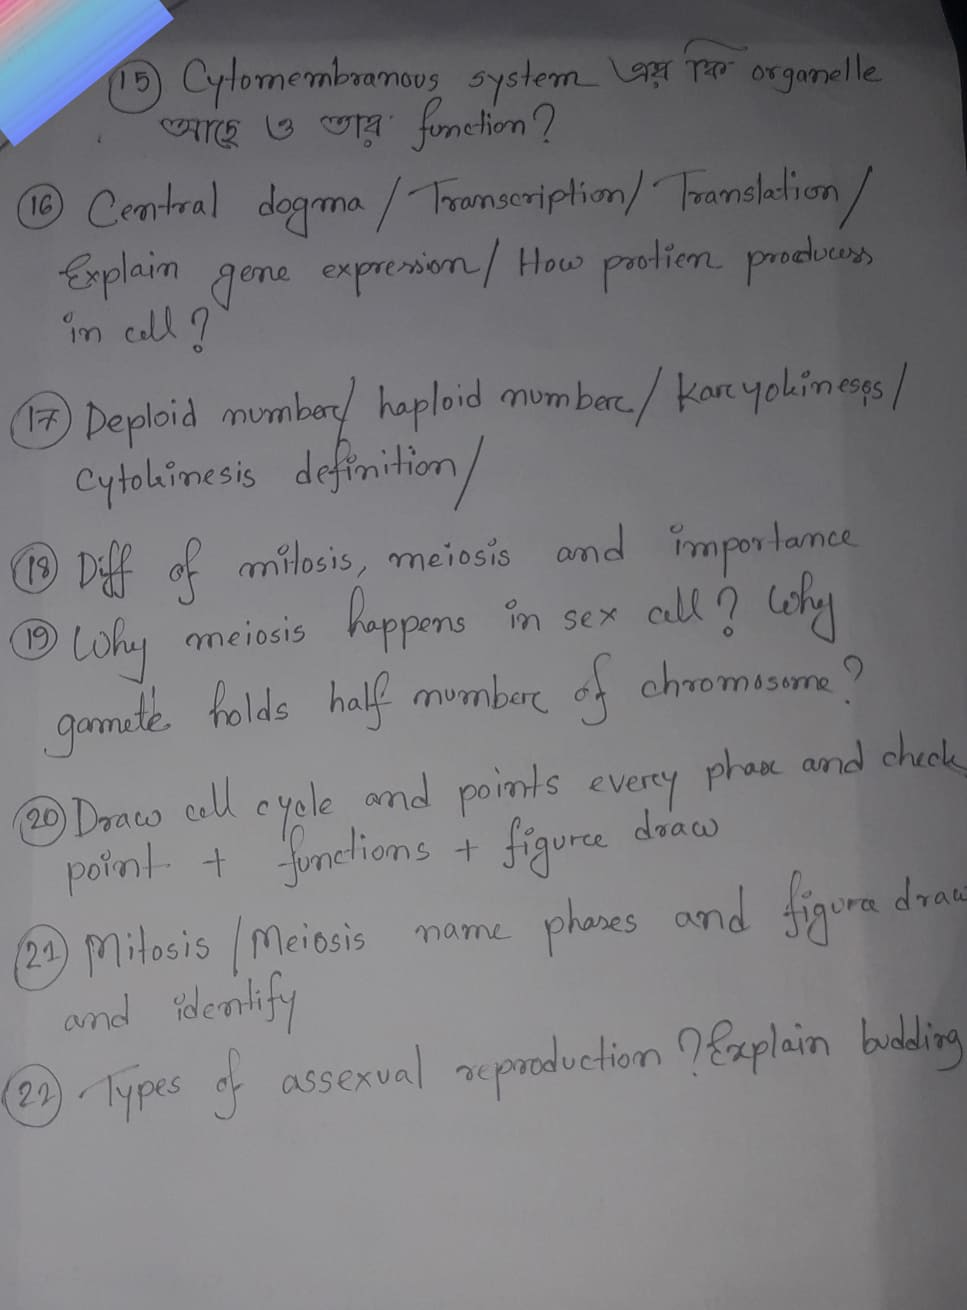 15 Cytomembranous system এর কি organelle
আছে ও তার function?
16 Central dogma / Transcription / Translation /
Explain gene expression / How protien producess
in cell?
17 Deploid number / haploid number / karyokineses /
Cytokinesis definition /
18 Diff of mitosis, meiosis and importance
19 Why meiosis happens in sex cell? Why
gamete holds half number of chromosome?
20 Draw cell cycle and points every phase and check
point + functions + figure draw
21 Mitosis / Meiosis name phases and figure draw
and identify
22 Types of assexual reproduction? Explain budding